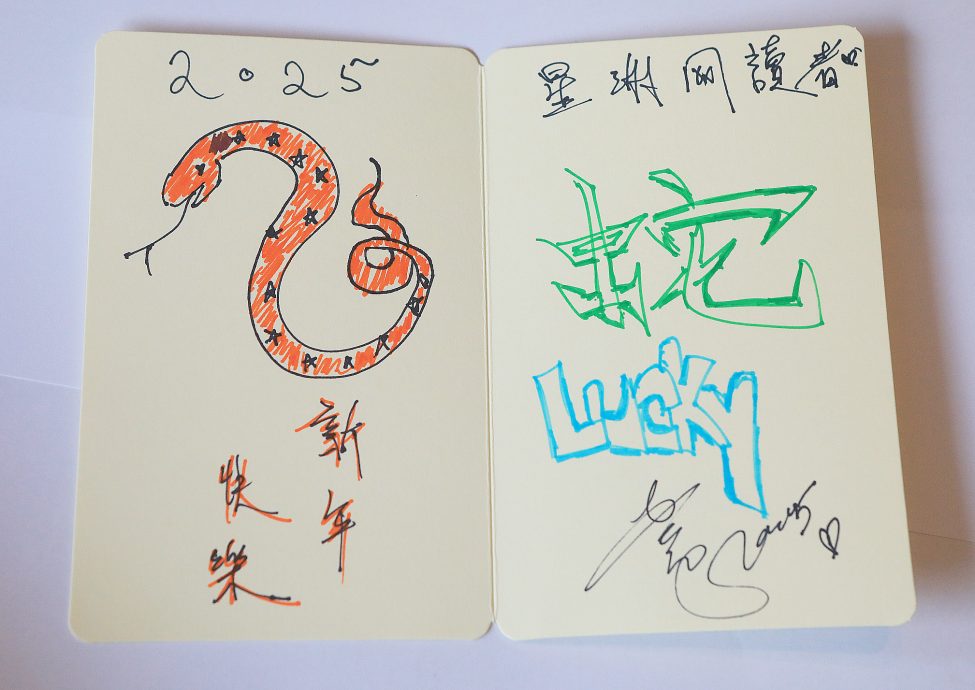 2025
新年
快樂
星洲网讀者
蛇
Lucky